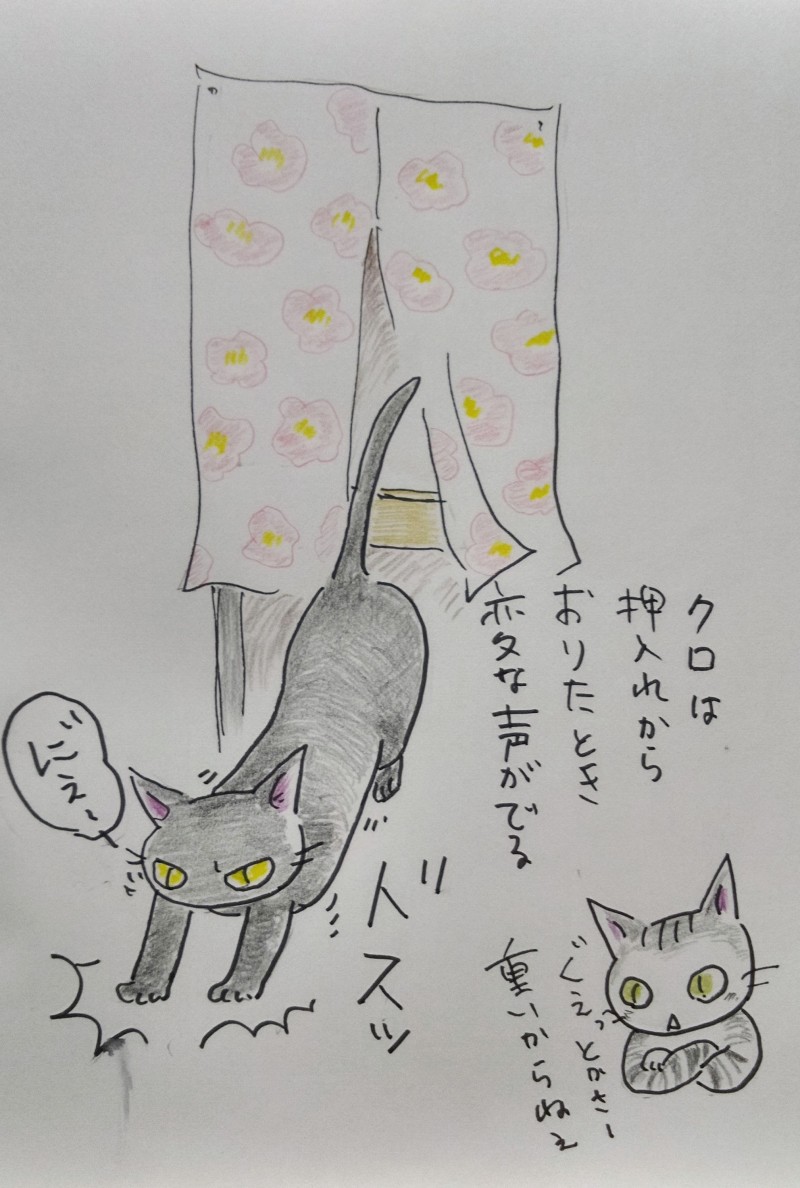 クロは
押入れから
おりたとき
変な声がでる
ぐえ〜
ドスッ
ぐえっとかさー
重いからねぇ